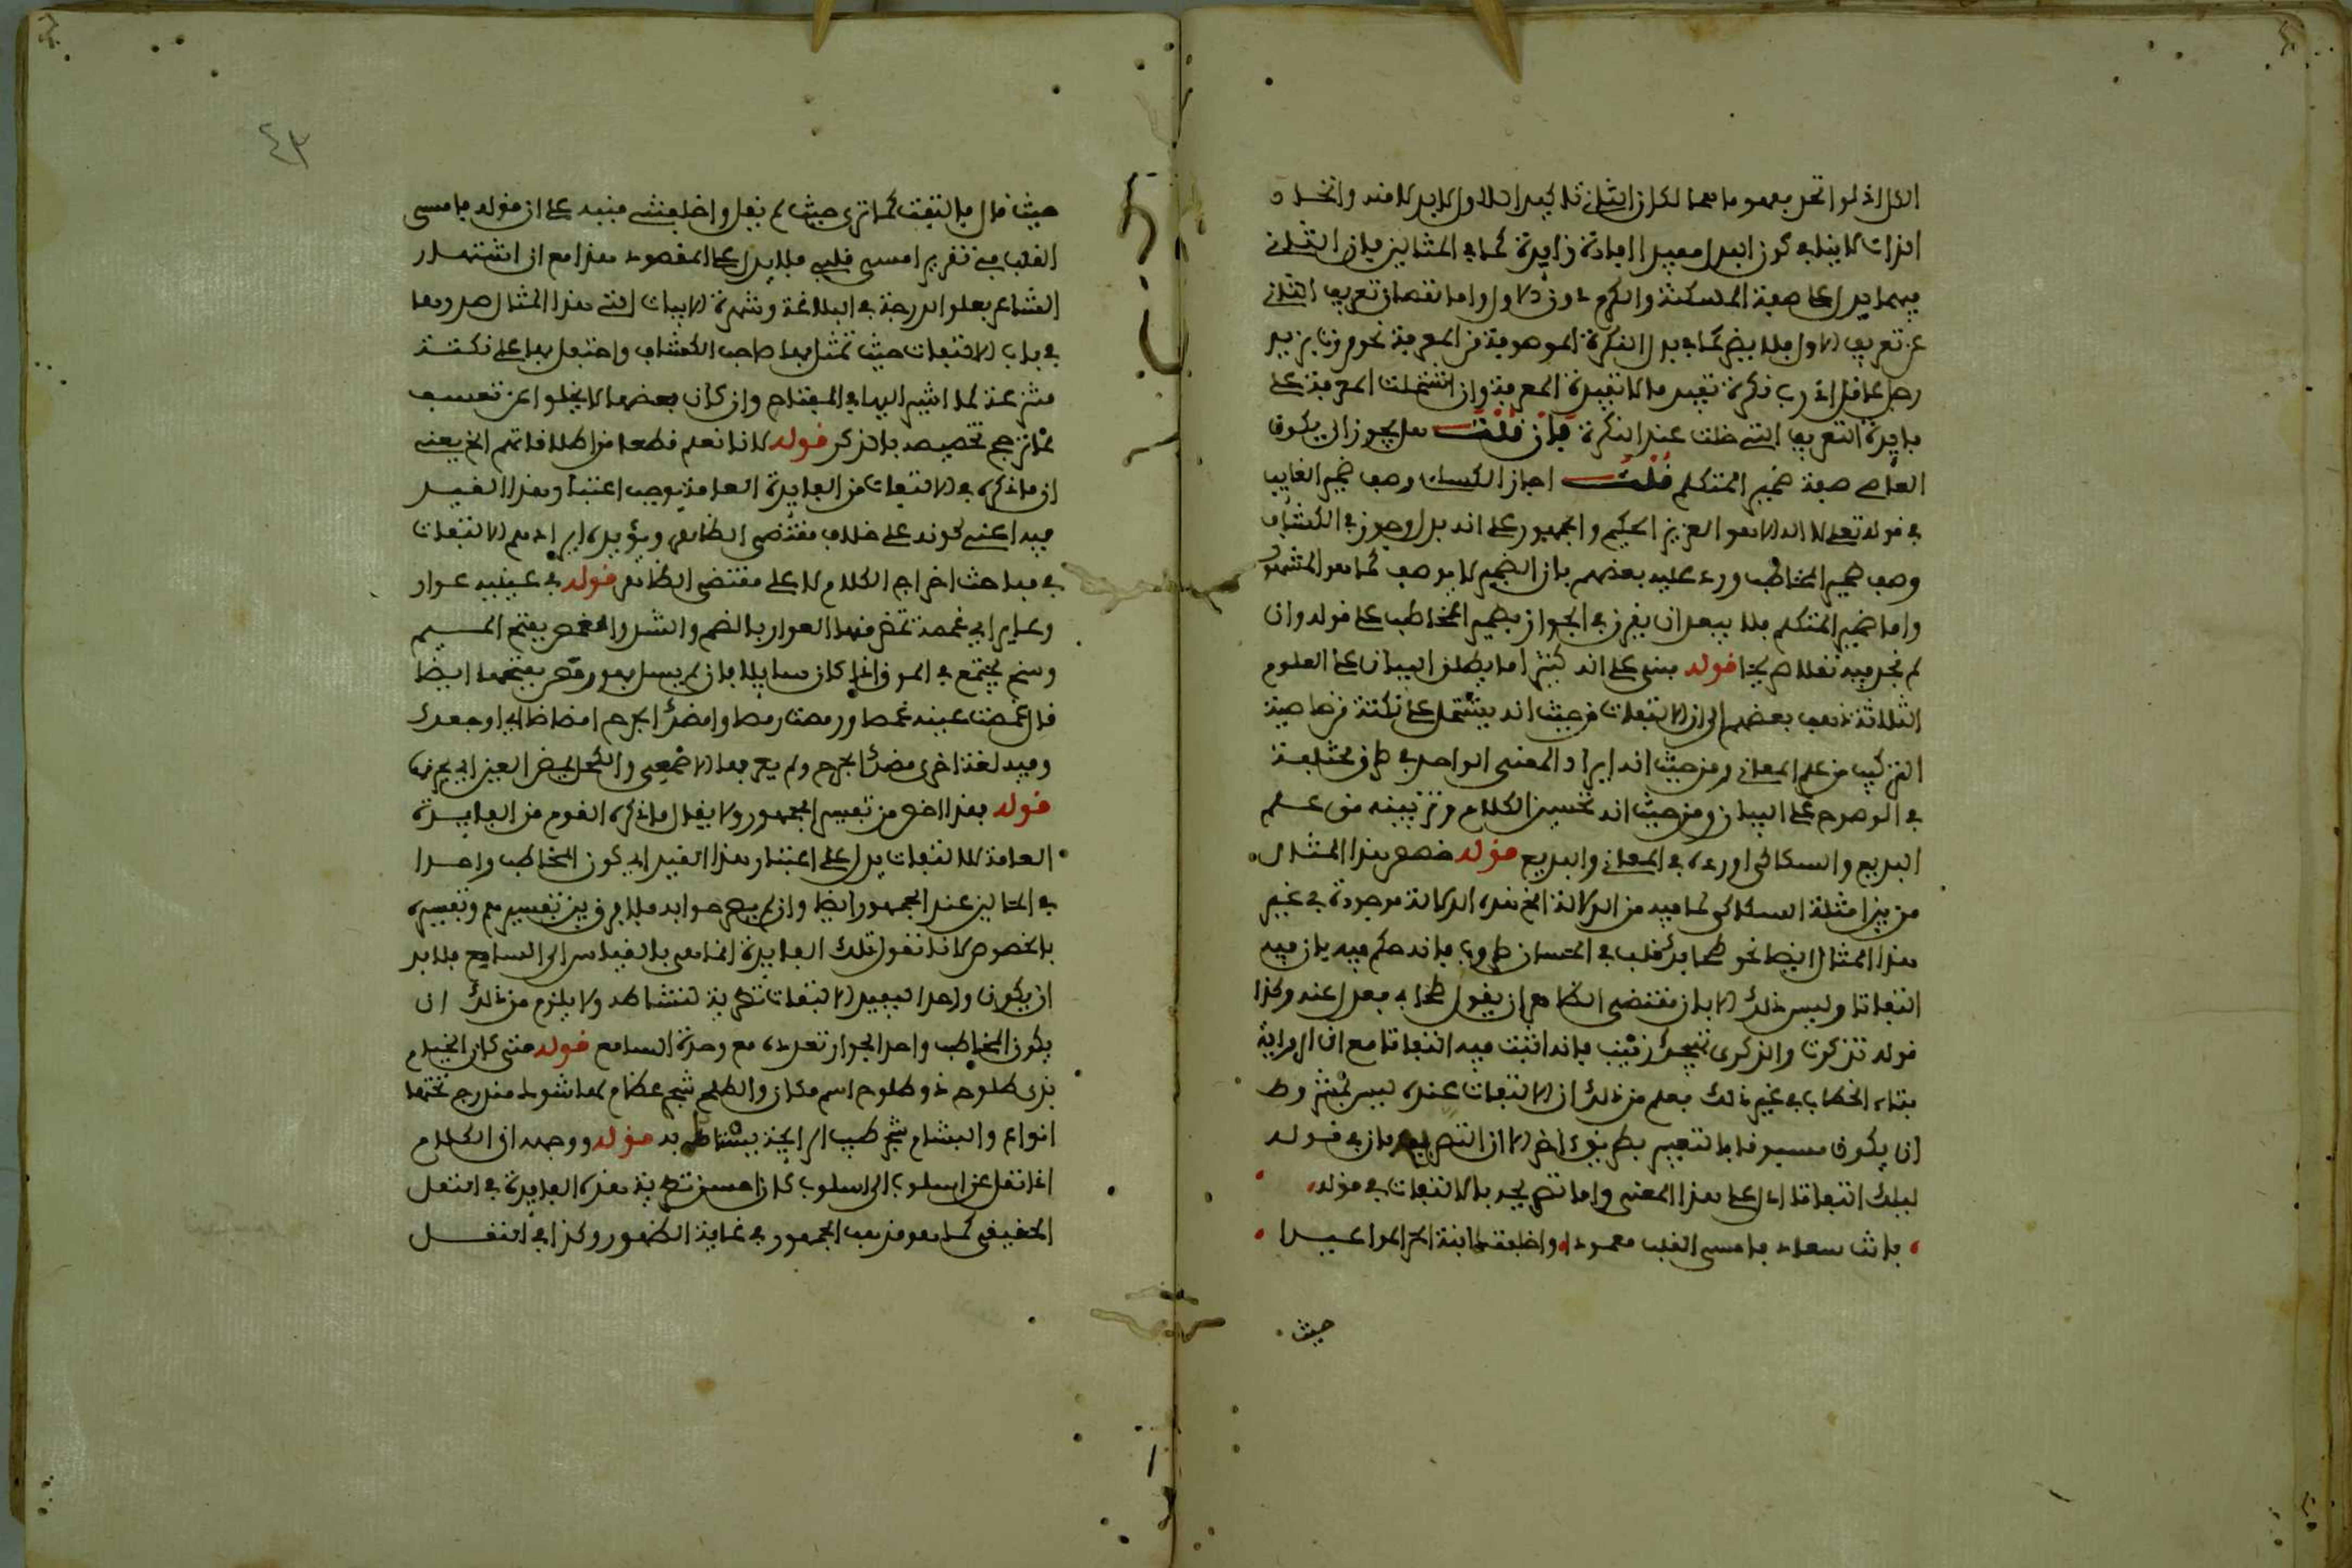 الكل اذ لو اتحد مفهوما هما لكان الثاني تاكيدا للاول لا بدلا منه واتحاد
الذات لا ينافي كون البدل مفيدا افادة زايدة كما في المثالين فان الثاني
فيهما يدل على صفة المسكنة والكرم دون الاول واما نقصان تعريف الثاني
عن تعريف الاول فلا يضر كما في بدل النكرة الموصوفة من المعرفة نحو مررت بزيد
رجل عاقل اذ رب نكرة تفيد ما لا تفيده المعرفة وان اشتملت المعرفة على
فايدة التعريف التي خلت عنه النكرة فان قلت هل يجوز ان يكون
العاصي صفة ضمير المتكلم قلت اجاز الكسائي وصف ضمير الغايب
في قوله تعلى لا اله الا هو العزيز الحكيم والجمهور على انه بدل وجوز في الكشاف
وصف ضمير المخاطب ورد عليه بعضهم بان الضمير لا يوصف كما هو المشهور
واما ضمير المتكلم فلا يبعد ان يقرن في الجواز بضمير المخاطب على قوله وان
لم نجد فيه نقلا صريحا قوله مبني على انه كثيرا ما يطلق البيان على العلوم
الثلاثة ذهب بعضهم الى ان الالتفات من حيث انه يشتمل على نكتة من خاصية
التركيب من علم المعاني ومن حيث انه ايراد المعنى الواحد في طرق مختلفة
في الوضوح علم البيان ومن حيث انه تحسين الكلام وتزيينه من علم
البديع والسكاكي اورده في المعاني والبديع قوله خصص هذا المثال
من بين امثلة السكاكي لما فيه من الدلالة الخ هذه الدلالة موجودة في غير
هذا المثال ايضا نحو طحا بك قلب في الحسان طروب فانه حكم فيه بان فيه
التفاتا وليس ذلك الا بان مقتضى الظاهر ان يقول طحا بي فعدل عنه وكذا
قوله تذكرت والذكرى تهيجك زينب فانه اثبت فيه التفاتا مع ان الرواية
بتاء الخطاب في غير ذلك فعلم من ذلك ان الالتفات عنده ليس بمشروط
ان يكون مسبوقا بالتعبير بطريق اخر الا ان التصريح بان في قوله
ليلك التفاتا ادل على هذا المعنى واما تصريحه بالالتفات في قوله
بانت سعاد فامسى القلب معمودا واخلفتك ابنة الحر المواعيدا
حيث
٤٣
حيث قال فالتفت كما ترى حيث لم يقل واخلفتني فبنيه على ان قوله فامسى
القلب في تقدير امسى قلبي فلا يدل على المقصود هذا مع ان اشتهار
الشاعر بعلو الدرجة في البلاغة وشهرة الابيات التي هذا المثال صدرها
في باب الالتفات حيث تمثل بها صاحب الكشاف واحتفل بها على نكتة
متفرعة لما اشير اليها في المفتاح وان كان بعضها لا يخلوا عن تعسف
مما ترجح تخصيصه بالذكر قوله لانا نعلم قطعا من اطلاقاتهم الخ يعني
ان ما ذكره في الالتفات من الفايدة العامة يوجب اعتبار هذا القيد
فيه اعني كونه على خلاف مقتضى الظاهر ويؤيده ايرادهم الالتفات
في مباحث اخراج الكلام لا على مقتضى الظاهر قوله في عينيه عوار
وعاير اي غمصة تمض منها العوار بالضم والتشديد والغمص بفتح الميم
وسخ يجتمع في الموق اذا كان سايلا فان لم يسل فهو رمص بفتحهما ايضا
قال غمصت عينه غمصا ورمصت رمصا وامضك الجرح امضاضا اي اوجعك
وفيه لغة اخرى مضك الجرح ولم يعرفها الاصمعي والكحل يمض العين اي يحرقها
قوله بهذا اخص من تفسير الجمهور ولا يقال ما ذكره القوم من الفايدة
العامة للالتفات يدل على اعتبار هذا القيد اي كون المخاطب واحدا
في الحالين عند الجمهور ايضا وان لم يصرحوا به فلا فرق بين تفسيرهم وتفسيره
بالخصوص لانا نقول تلك الفايدة انما هي بالقياس الى السامع فلا بد
ان يكون واحدا ليفيد الالتفات تطرية لنشاطه ولا يلزم من ذلك ان
يكون المخاطب واحدا لجواز تعدده مع وحدة السامع قوله متى كان الخيام
بذى طلوح ذو طلوح اسم مكان والطلح شجر عظام لها شوك مندرج تحتها
انواع والبشام شجر طيب الرايحة يستاك به قوله ووجهه ان الكلام
اذا نقل عن اسلوب الى اسلوب كان احسن تطرية هذه الفايدة في النقل
الحقيقي كما هو مذهب الجمهور في غاية الظهور وكذا في النقل